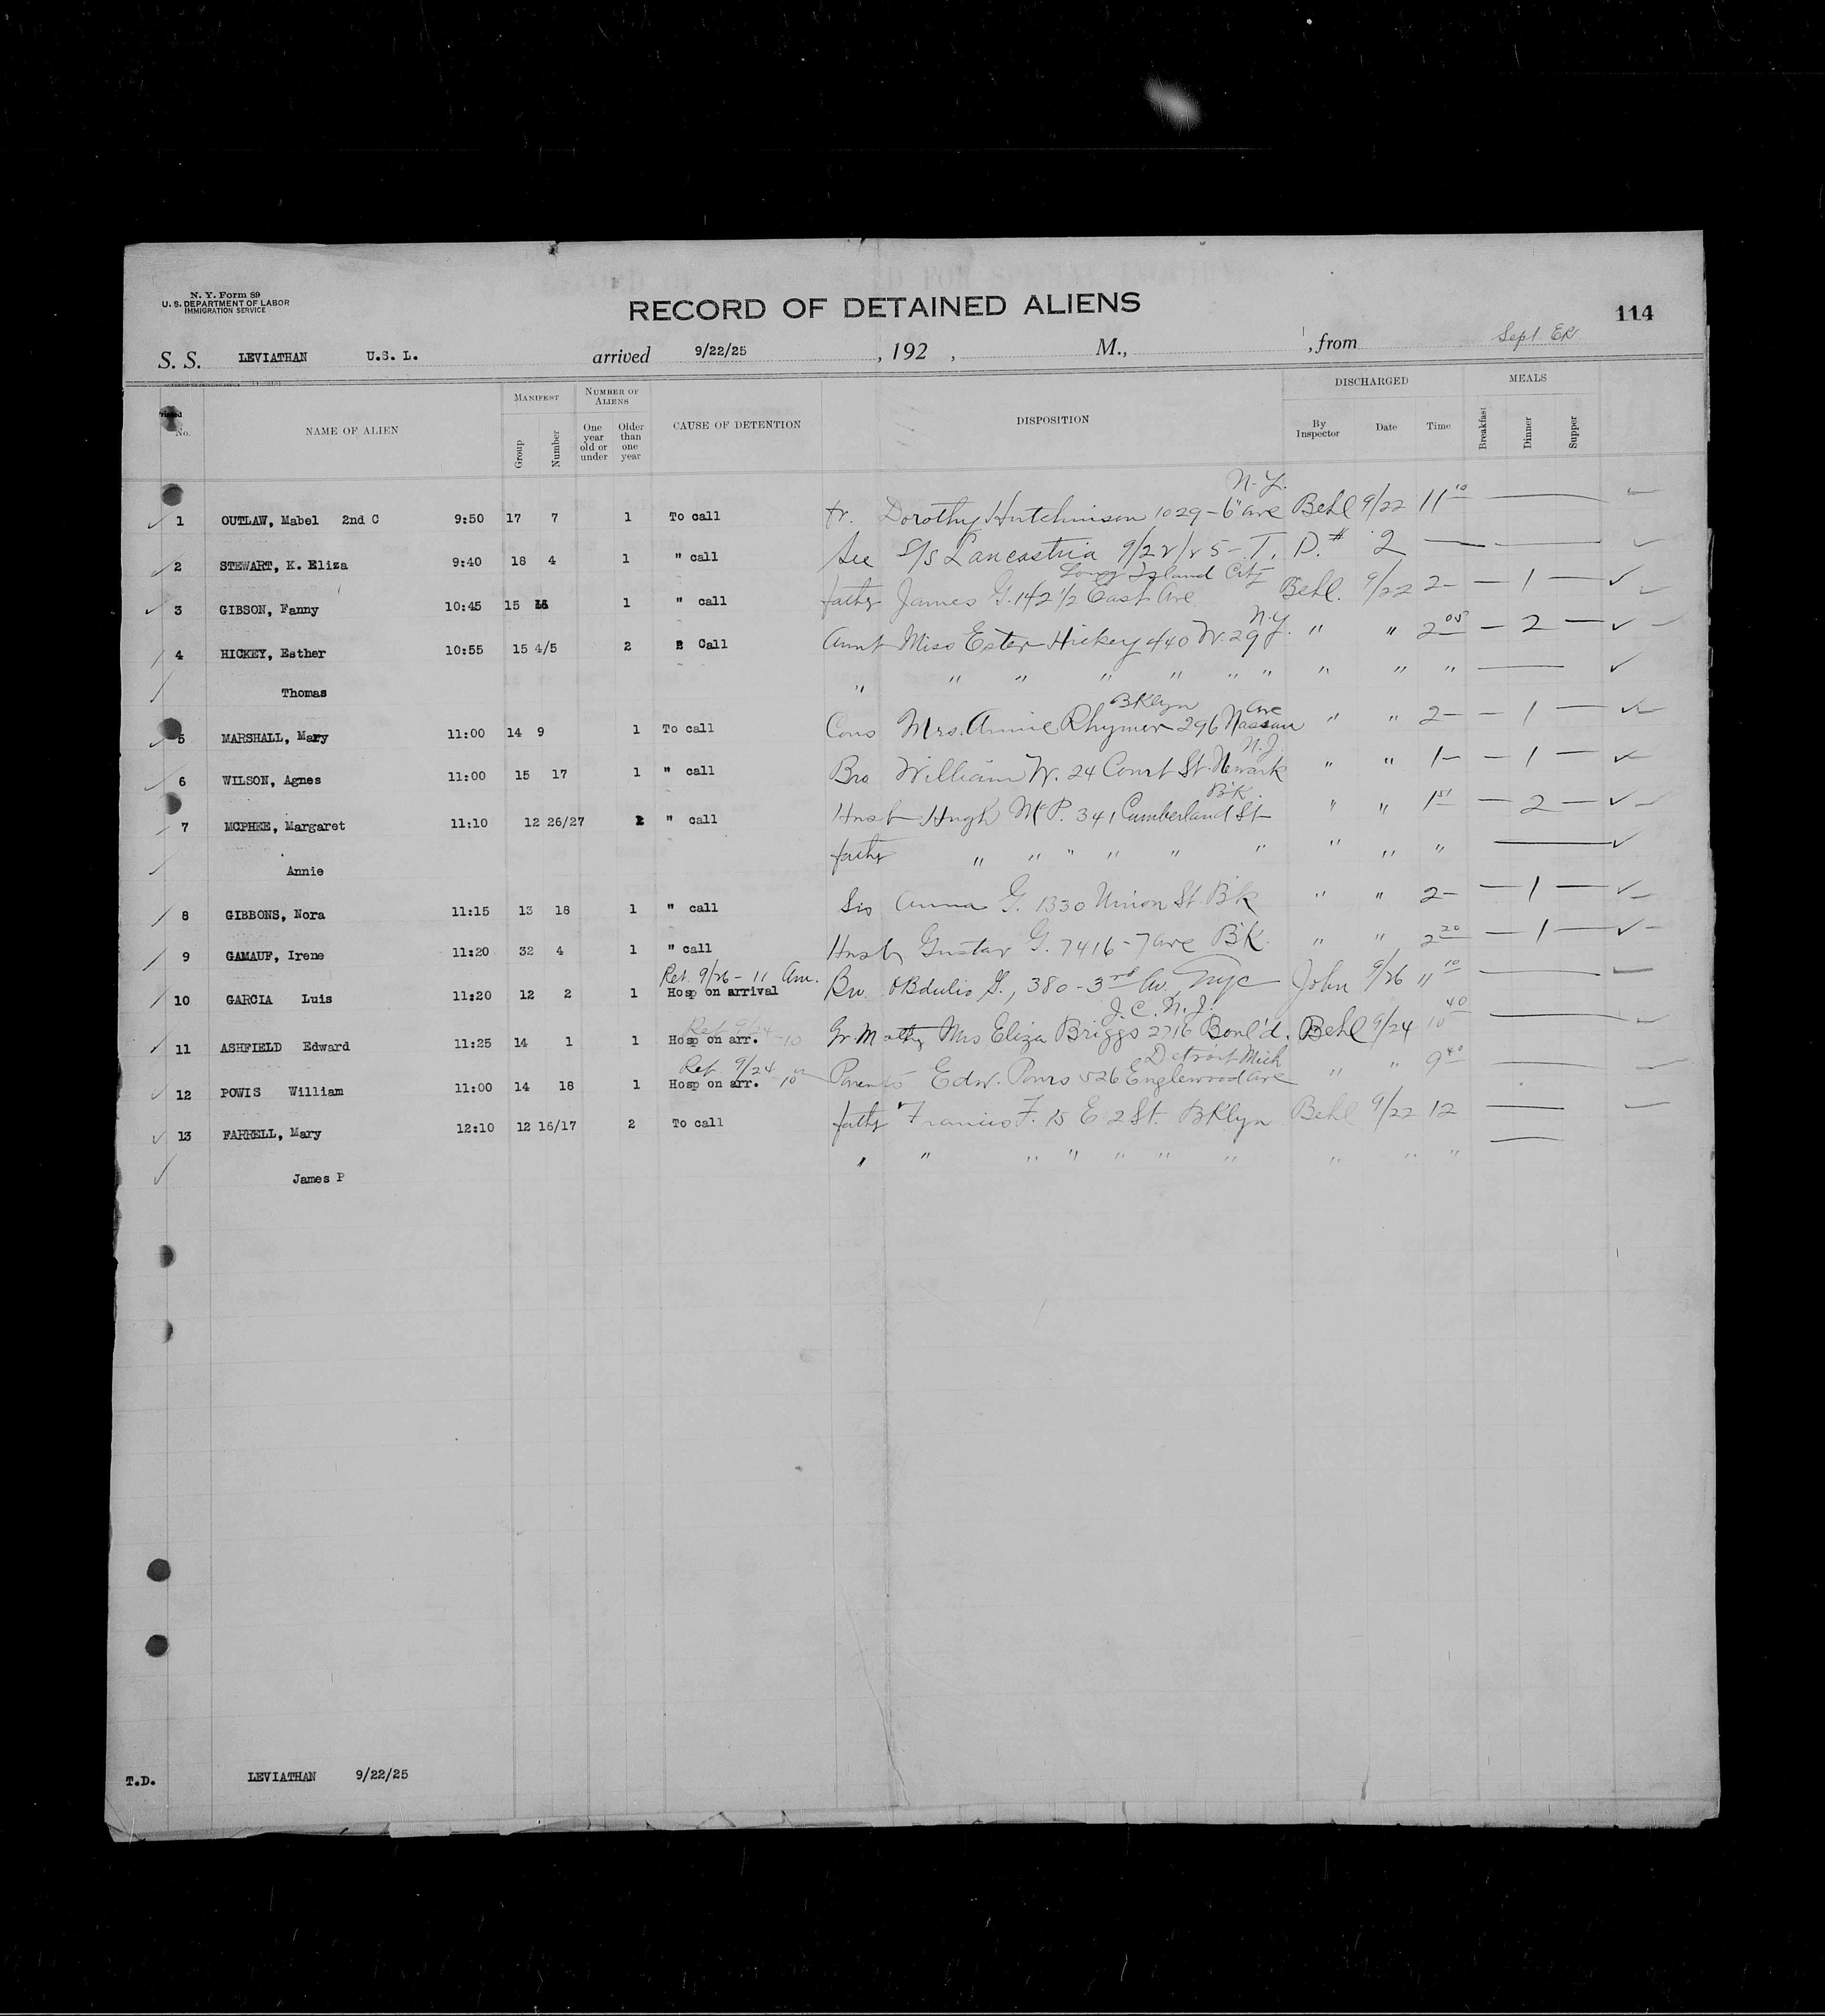 N. Y. Form 89
U. S. DEPARTMENT OF LABOR
IMMIGRATION SERVICE
RECORD OF DETAINED ALIENS
114
S. S. LEVIATHAN U.S. L. arrived 9/22/25 , 192 , M., , from Sept.
No. NAME OF ALIEN MANIFEST Group Number NUMBER OF ALIENS One year old or under Older than one year CAUSE OF DETENTION DISPOSITION DISCHARGED By Inspector Date Time MEALS Breakfast Dinner Supper
N.Y.
1 OUTLAW, Mabel 2nd C 9:50 17 7 1 To call fr. Dorothy Hutchinson 1029-6" ave Behl 9/22 11 10
2 STEWART, K. Eliza 9:40 18 4 1 " call See S/S Lancastria 9/22/25 - T. D. # 2
Long Island City
3 GIBSON, Fanny 10:45 15 1 " call father James G. 142 1/2 East Ave Behl. 9/22 2 - - 1 - ✓
N.Y.
4 HICKEY, Esther 10:55 15 4/5 2 Call Aunt Miss Ester Hickey 440 W. 29 " " 2 05 - 2 - ✓
Thomas " " " " " " " " " " ✓
BKlyn Ave
5 MARSHALL, Mary 11:00 14 9 1 To call Cous Mrs. Annie Rhymer 296 Nassau " " 2 - - 1 - ✓
N.J.
6 WILSON, Agnes 11:00 15 17 1 " call Bro William W. 24 Court St. Newark " " 1 - - 1 - ✓
B'K.
7 MCPHEE, Margaret 11:10 12 26/27 2 " call Husb Hugh McP. 341 Cumberland St " " 1 51 - 2 - ✓
Annie father " " " " " " " " " ✓
8 GIBBONS, Nora 11:15 13 18 1 " call Sis Anna G. 1330 Union St. B'k " " 2 - - 1 - ✓
9 GAMAUF, Irene 11:20 32 4 1 " call Husb Gustav G. 7416-7 ave B'K. " " 2 20 - 1 - ✓
Ret. 9/26 - 11 Am.
10 GARCIA Luis 11:20 12 2 1 Hosp on arrival Bro. OBdulio G., 380-3rd Av. NYC John 9/26 11 10
Ret 9/24 - 10 J.C. N.J.
11 ASHFIELD Edward 11:25 14 1 1 Hosp on arr. Gr Mother Mrs Eliza Briggs 2716 Boul'd. Behl 9/24 10 40
Ret. 9/24 - 10 Detroit Mich
12 POWIS William 11:00 14 18 1 Hosp on arr. Parents Edw. Powis 526 Englewood Ave " " 9 40
13 FARRELL, Mary 12:10 12 16/17 2 To call father Francis F. 15 E 2 St. BKlyn Behl 9/22 12
James P " " " " " " " " " "
T.D. LEVIATHAN 9/22/25